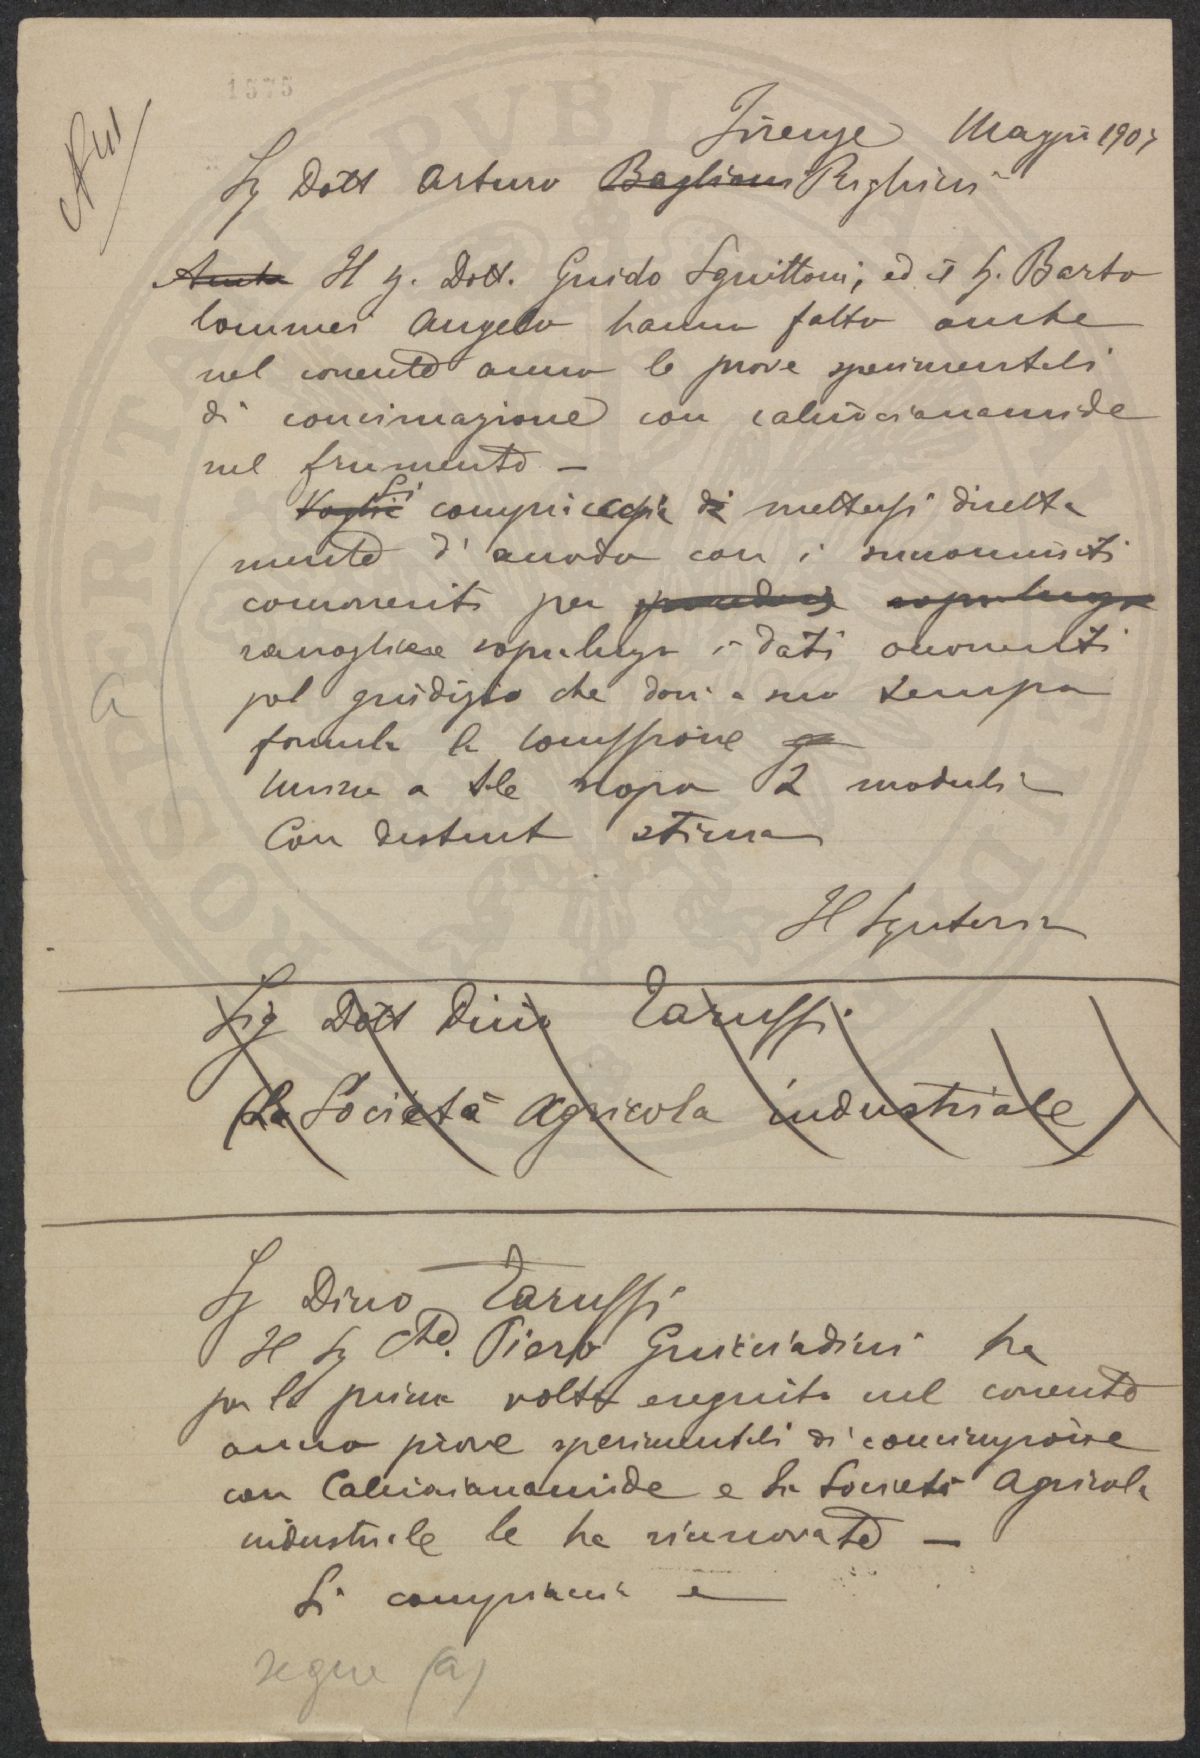 1575
N 41
Firenze Maggio 1907
Sg Dott Arturo Baglioni Righini
Il Sg. Dott. Guido Sguittoni, ed il Sg. Barto
lommei Angelo hanno fatto anche
nel corrente anno le prove sperimentali
di concimazione con calciocianamide
nel frumento —
Voglia Si compiaccia di mettersi diretta
mente d'accordo con i summenzionati
concorrenti per
raccogliere sopraluogo i dati occorrenti
pel giudizio che dovrà a suo tempo
formulare la Commissione
Unisco a tale scopo 2 moduli
Con distinta stima
Il Segretario
a
Sig Dott Dino Tarussi
La Società Agricola industriale
Sg Dino Tarussi
Il Sg Cte. Piero Guicciardini ha
per la prima volta eseguita nel corrente
anno prove sperimentali di concimazione
con Calciocianamide e la Società Agricola
industriale le ha rinnovate —
Si compiaccia e
segue (a)